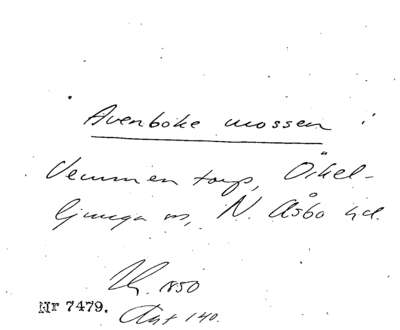 Avenboke mossen i
Vemmentorp, Örkel-
ljunga sn, N. Åsbo hd.
1850
Nr 7479.
140.